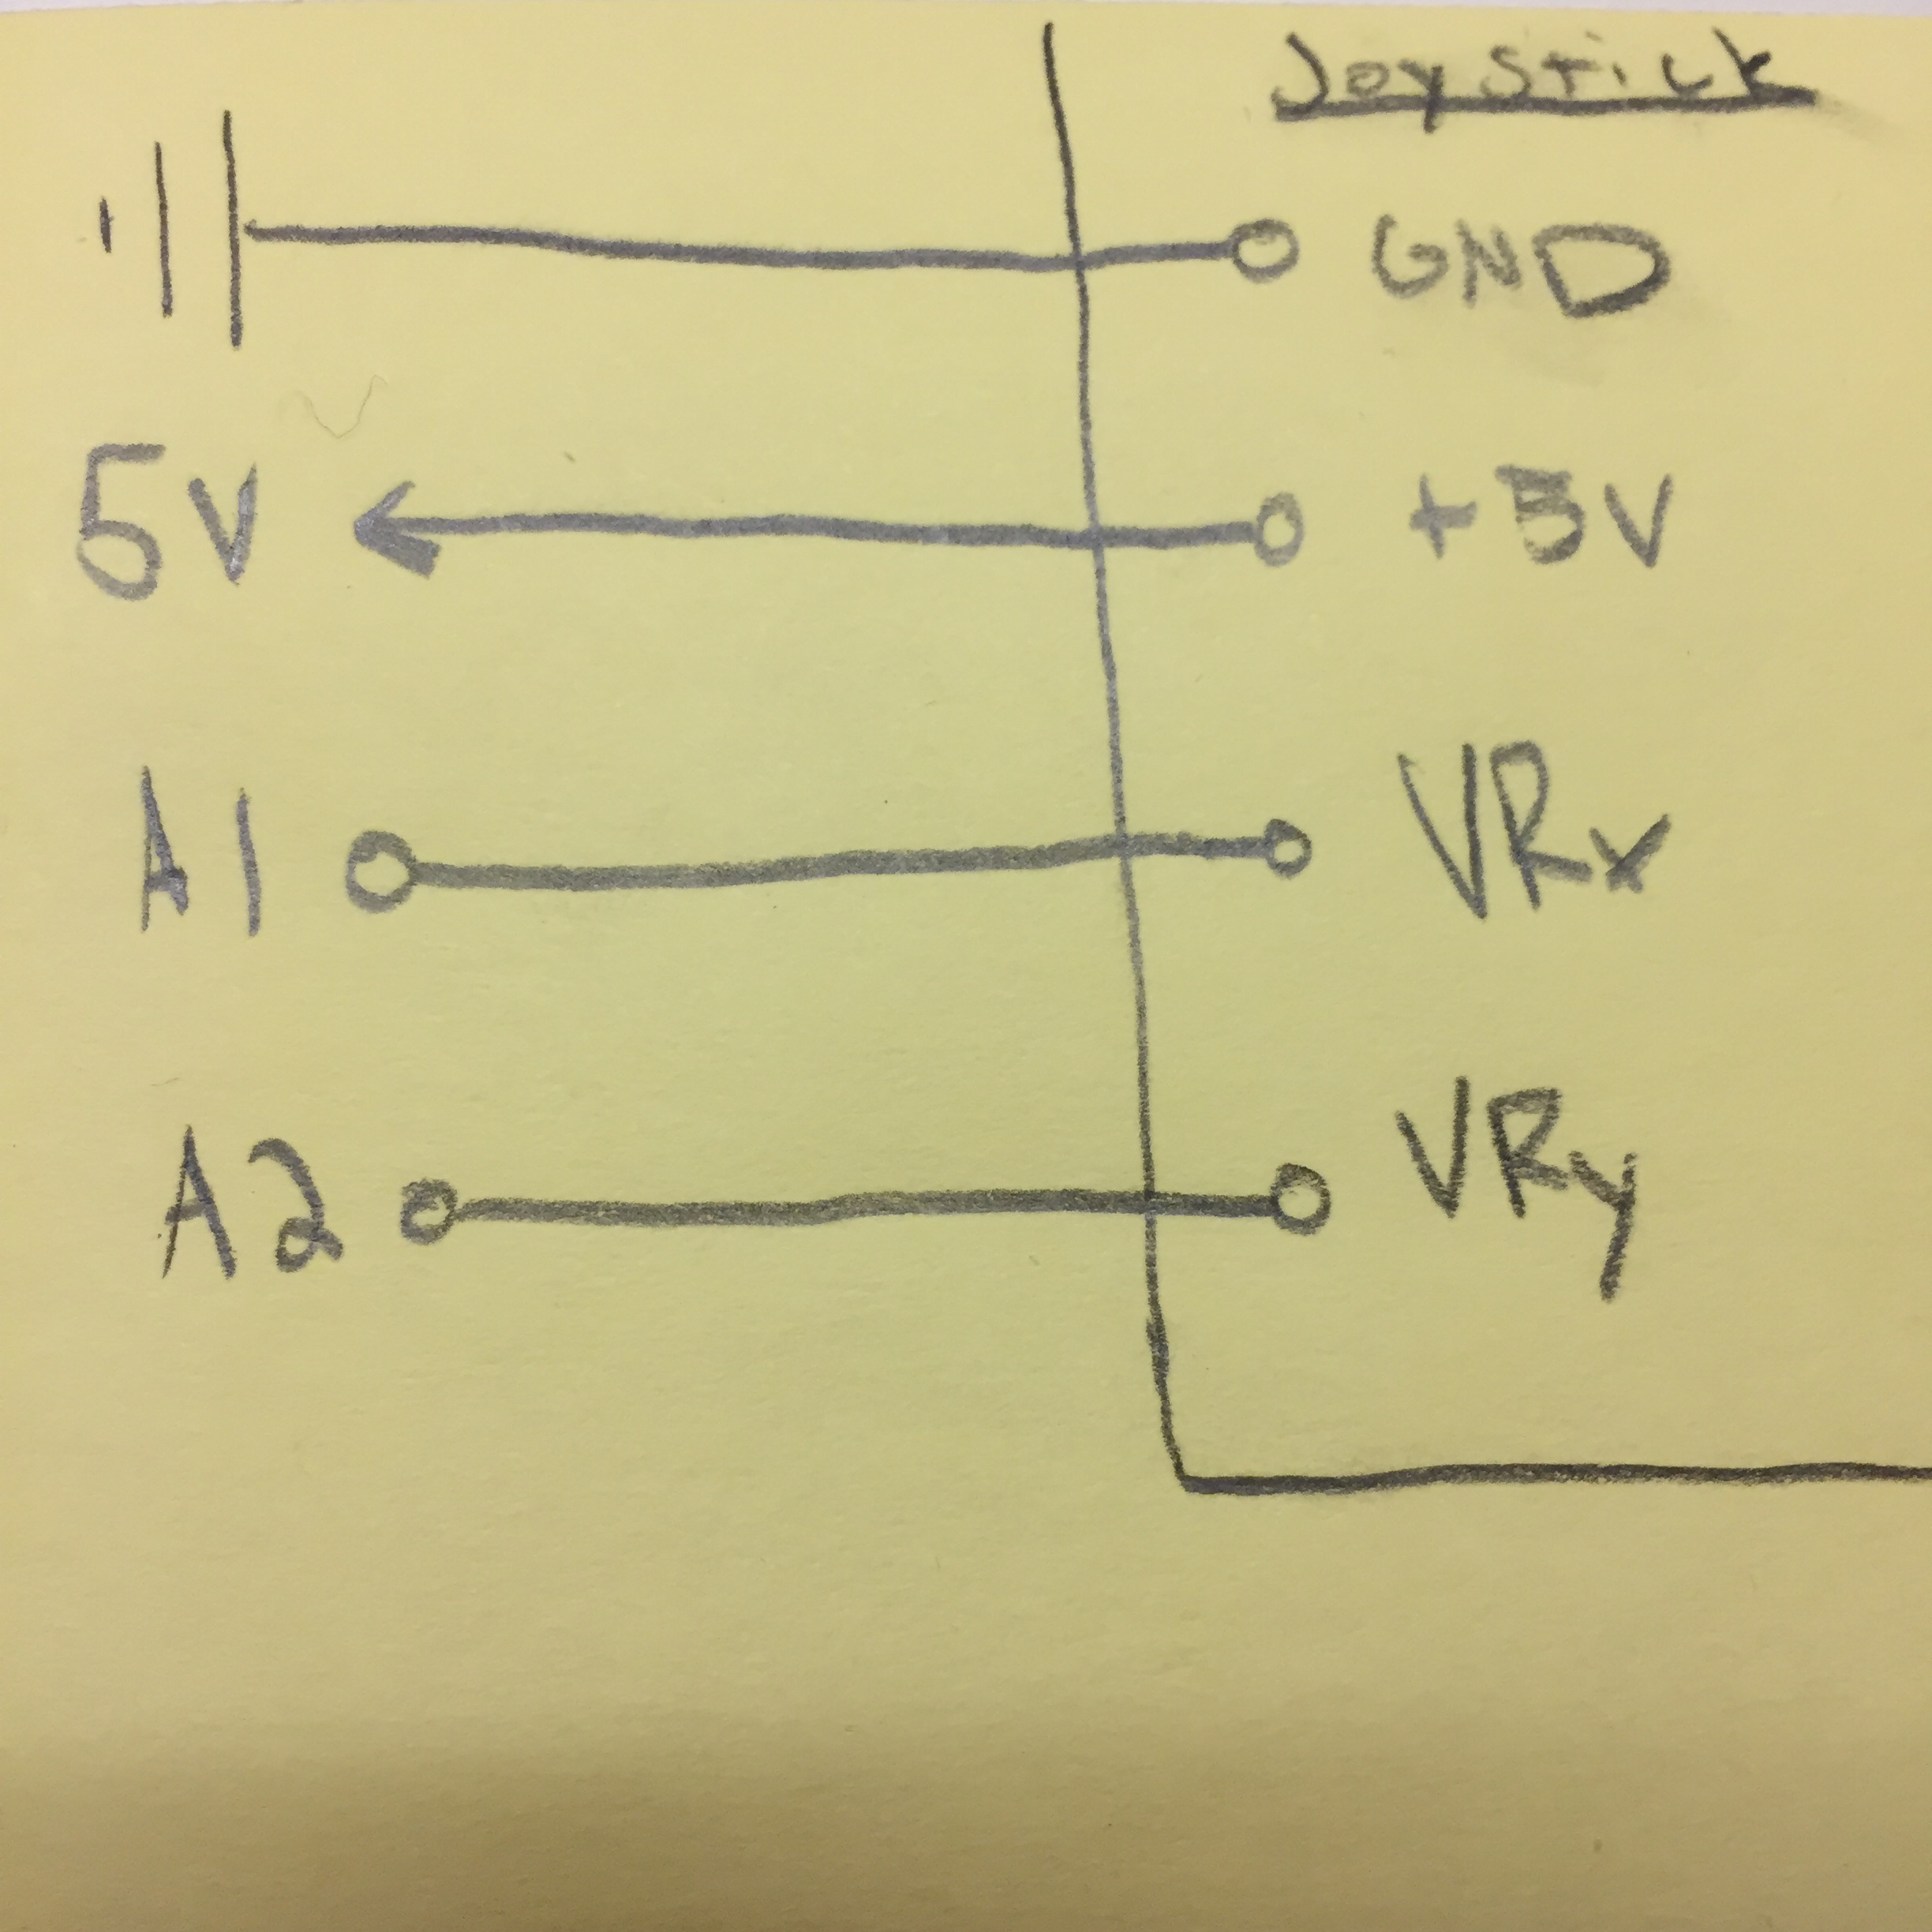 Joystick
GND
5V +5V
A1 VRx
A2 VRy